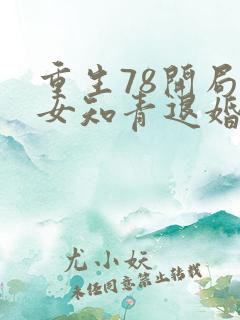 重生78开局
女知青退婚
尤小妖
未经同意禁止转载